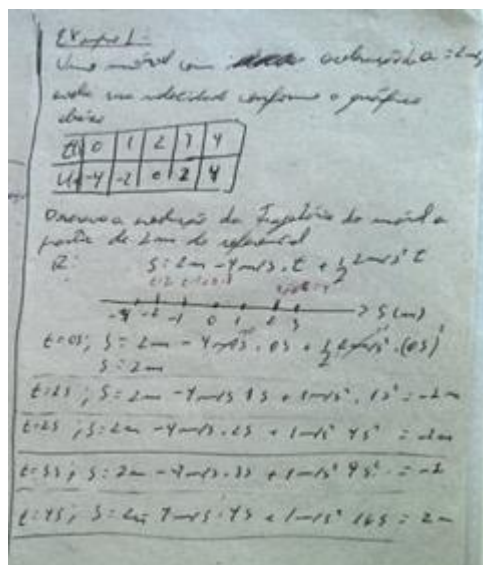 Exemplo 1:
Um móvel com aceleração a = 2m/s²
sua velocidade conforme o gráfico
abaixo
t 0 1 2 3 4
V -4 -2 0 2 4
a evolução da Trajetória do móvel a
partir de 2m do referencial
R: S = 2m - 4m/s . t + 1/2 2m/s² t
-3 -2 -1 0 1 2 3 > S(m)
t=0s; S = 2m - 4m/s . 0s + 1/2 2m/s² . (0s)²
S = 2m
t=1s; S = 2m - 4m/s 1s + 1m/s² . 1s² = -1m
t=2s; S = 2m - 4m/s . 2s + 1m/s² 4s² = -2m
t=3s; S = 2m - 4m/s . 3s + 1m/s² 9s² = -1
t=4s; S = 2m 4m/s . 4s + 1m/s² 16s = 2m